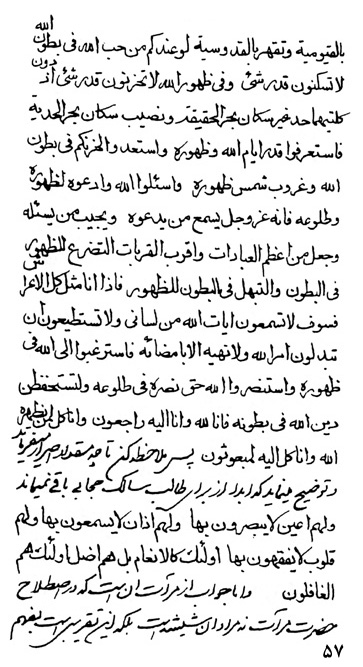 الله
بالقيومية و تقهر بالقدوسية لو عندكم من حب الله فى بطون
لا تسكنون قدر شئ وفى ظهور الله لا تحزنون قدر شئ اذ دون
كلتيهما حد غير سكان بحر الحقيقة و نصيب سكان بحر الحدية
فاستعرفوا قدر ايام الله وظهوره واستعد والحزنكم فى بطون
الله وغروب شمس ظهوره واسئلوا الله وادعوه لظهوره
وطلوعه فانه عز وجل يسمع من يدعوه ويجيب من يسئله
وجعل من اعظم العبادات واقرب القربات التضرع للظهور
فى البطون والتبهل فى البطون للظهور فاذا انا مثل كل الاعراش
فسوف لا تسمعون ايات الله من لسانى ولا تستطيعون ان
تبدلون امر الله ولا تهيه الا بامضائه فاسترغبوا الى الله فى
ظهوره واستنصروا الله حق نصره فى طلوعه ولتستحفظن
دين الله فى بطونه فانا لله وانا اليه راجعون وانا كل من يظهره
الله وانا كل اليه لمبعوثون پس ملاحظه كن تا چه مقدار اصرار ميفرمايد
و توضيح مينمايد كه ابدا از براى طالب سالك حجابى باقى نميماند
ولهم اعين لا يبصرون بها ولهم آذان لا يسمعون بها ولهم
قلوب لا يفقهون بها اولئك كالانعام بل هم اضل اولئك هم
الغافلون و اما جواب از مرآت ان است كه در اصطلاح
حضرت مرآت نه مراد ان شيشه است بلكه اين تقريبى است بفهم
۵۷